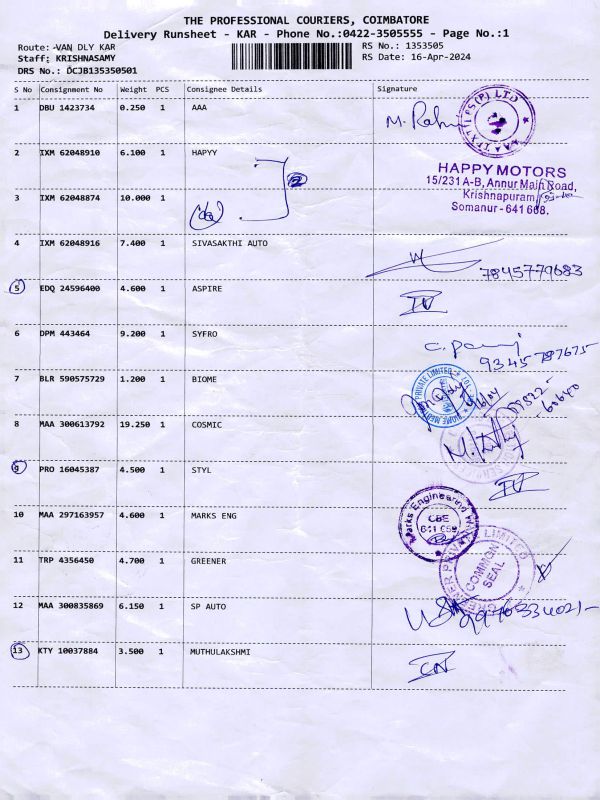 THE PROFESSIONAL COURIERS, COIMBATORE
Delivery Runsheet - KAR - Phone No.:0422-3505555 - Page No.:1
Route: -VAN DLY KAR RS No.: 1353505
Staff: KRISHNASAMY RS Date: 16-Apr-2024
DRS No.: DCJB135350501
S No Consignment No Weight PCS Consignee Details Signature
1 DBU 1423734 0.250 1 AAA
2 IXM 62048910 6.100 1 HAPYY
HAPPY MOTORS
15/231 A-B, Annur Main Road,
Krishnapuram,
Somanur - 641 668.
3 IXM 62048874 10.000 1
4 IXM 62048916 7.400 1 SIVASAKTHI AUTO
7845779683
5 EDQ 24596400 4.600 1 ASPIRE IV
6 DPM 443464 9.200 1 SYFRO
9345787675
7 BLR 590575729 1.200 1 BIOME
8 MAA 300613792 19.250 1 COSMIC
9 PRO 16045387 4.500 1 STYL IV
10 MAA 297163957 4.600 1 MARKS ENG
Marks Engineering
CBE
11 TRP 4356450 4.700 1 GREENER
GREENER PRIVATE LIMITED
COMMON
SEAL
12 MAA 300835869 6.150 1 SP AUTO
13 KTY 10037884 3.500 1 MUTHULAKSHMI